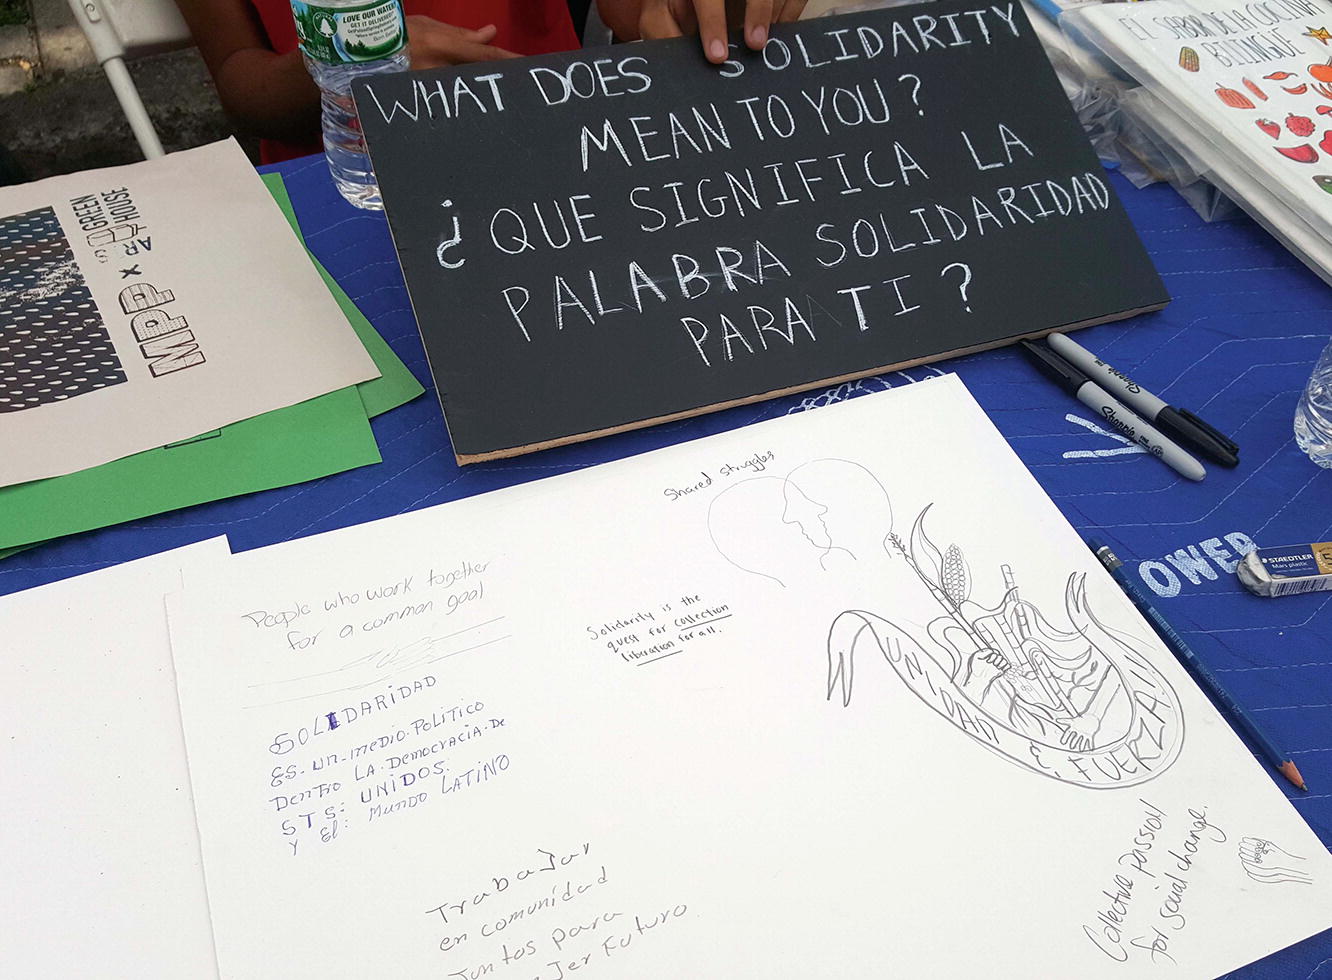 LOVE OUR WATER?
GET IT DELIVERED!
WHAT DOES SOLIDARITY
MEAN TO YOU?
¿QUE SIGNIFICA LA
PALABRA SOLIDARIDAD
PARA TI?
EL SABOR DE LA COCINA
BILINGÜE
GREEN
HOUSE
MPP x AR
Sharpie
Sharpie
OWER
STAEDTLER
Mars plastic
Shared struggles
People who work together
for a common goal
Solidarity is the
quest for collection
liberation for all.
UNIDAD
FUERZA!
SOLIDARIDAD
ES. UN. MEDIO. POLITICO
DENTRO LA. DEMOCRACIA. DE
STS: UNIDOS.
Y El: MUNDO LATINO
Trabajar
en comunidad
juntos para
Jer Futuro
Collective passion
for social change.